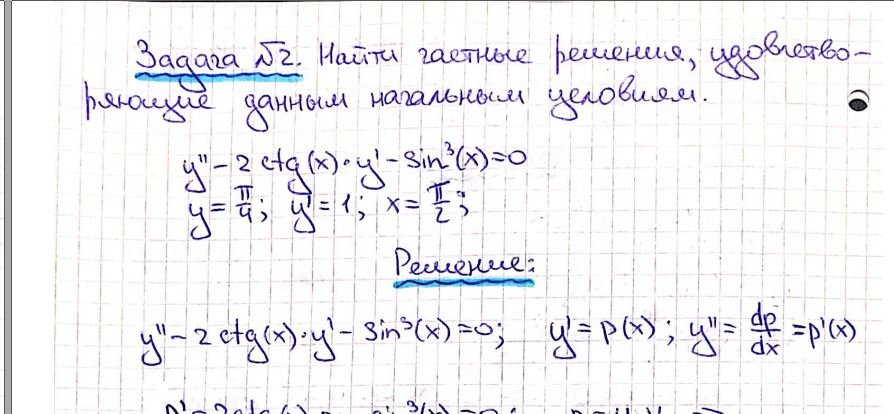 Задача №2. Найти частные решения, удовлетво-
ряющие данным начальным условиям.
y'' - 2 ctg(x)·y' - sin³(x) = 0
y = π/4; y' = 1; x = π/2;
Решение:
y'' - 2 ctg(x)·y' - sin³(x) = 0; y' = p(x); y'' = dp/dx = p'(x)